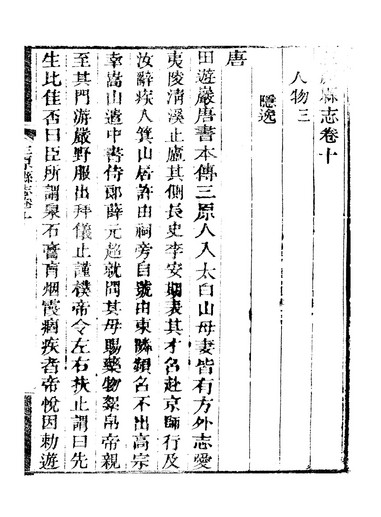 縣志卷十
人物三
隱逸
唐
田遊巖唐書本傳三原人入太白山母妻皆有方外志愛
夷陵清溪止廬其側長史李安期表其才名赴京師行及
汝辭疾入箕山居許由祠旁自號由東隣頻名不出高宗
幸嵩山遣中書侍郎薛元超就問其母賜藥物絮帛帝親
至其門游巖野服出拜儀止謹樸帝令左右扶止謂曰先
生比佳否曰臣所謂泉石膏肓烟霞痼疾者帝悅因勅遊
三原縣志卷十